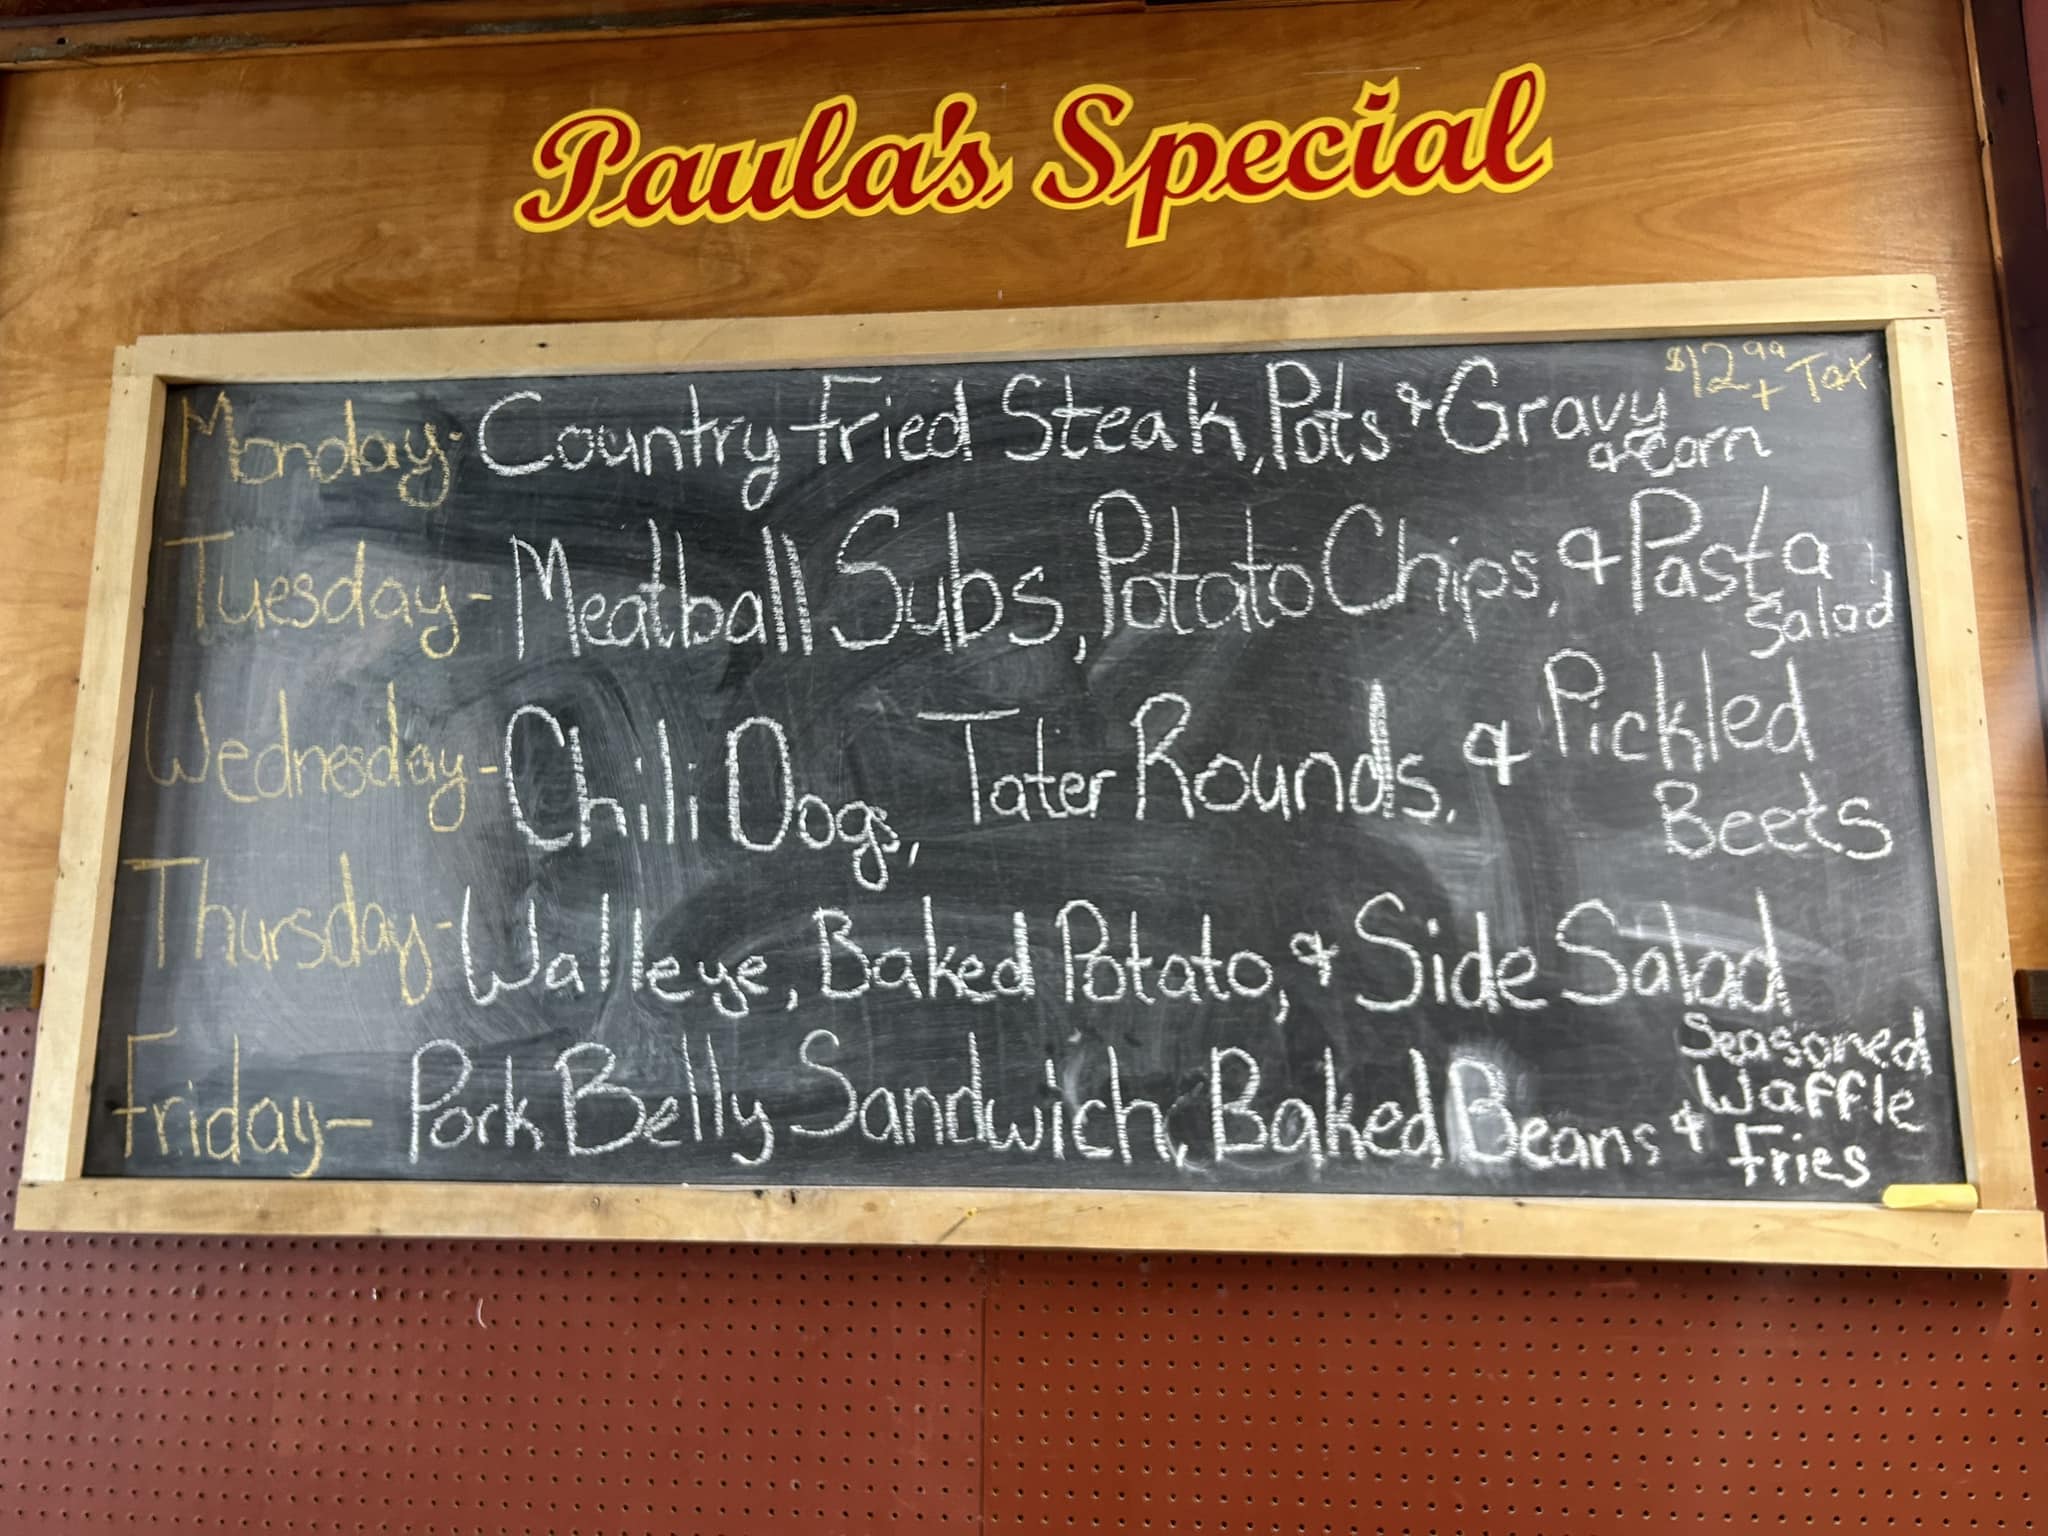 Paula's Special
$12.99 + Tax
Monday- Country Fried Steak, Pots & Gravy
& Corn
Tuesday- Meatball Subs, Potato Chips, & Pasta
Salad
Wednesday- Chili Dogs, Tater Rounds, & Pickled
Beets
Thursday- Walleye, Baked Potato, & Side Salad
Friday- Pork Belly Sandwich, Baked Beans & Seasoned
Waffle
Fries